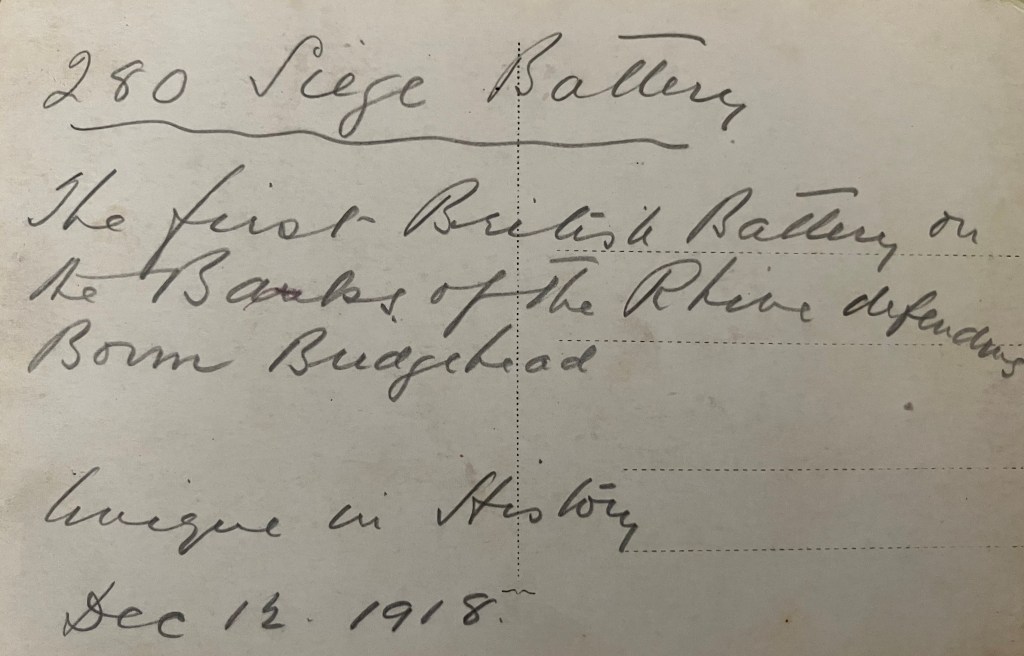 280 Siege Battery
The first British Battery on
the Banks of the Rhine defending
Bonn Bridgehead
Unique in History
Dec 12. 1918.